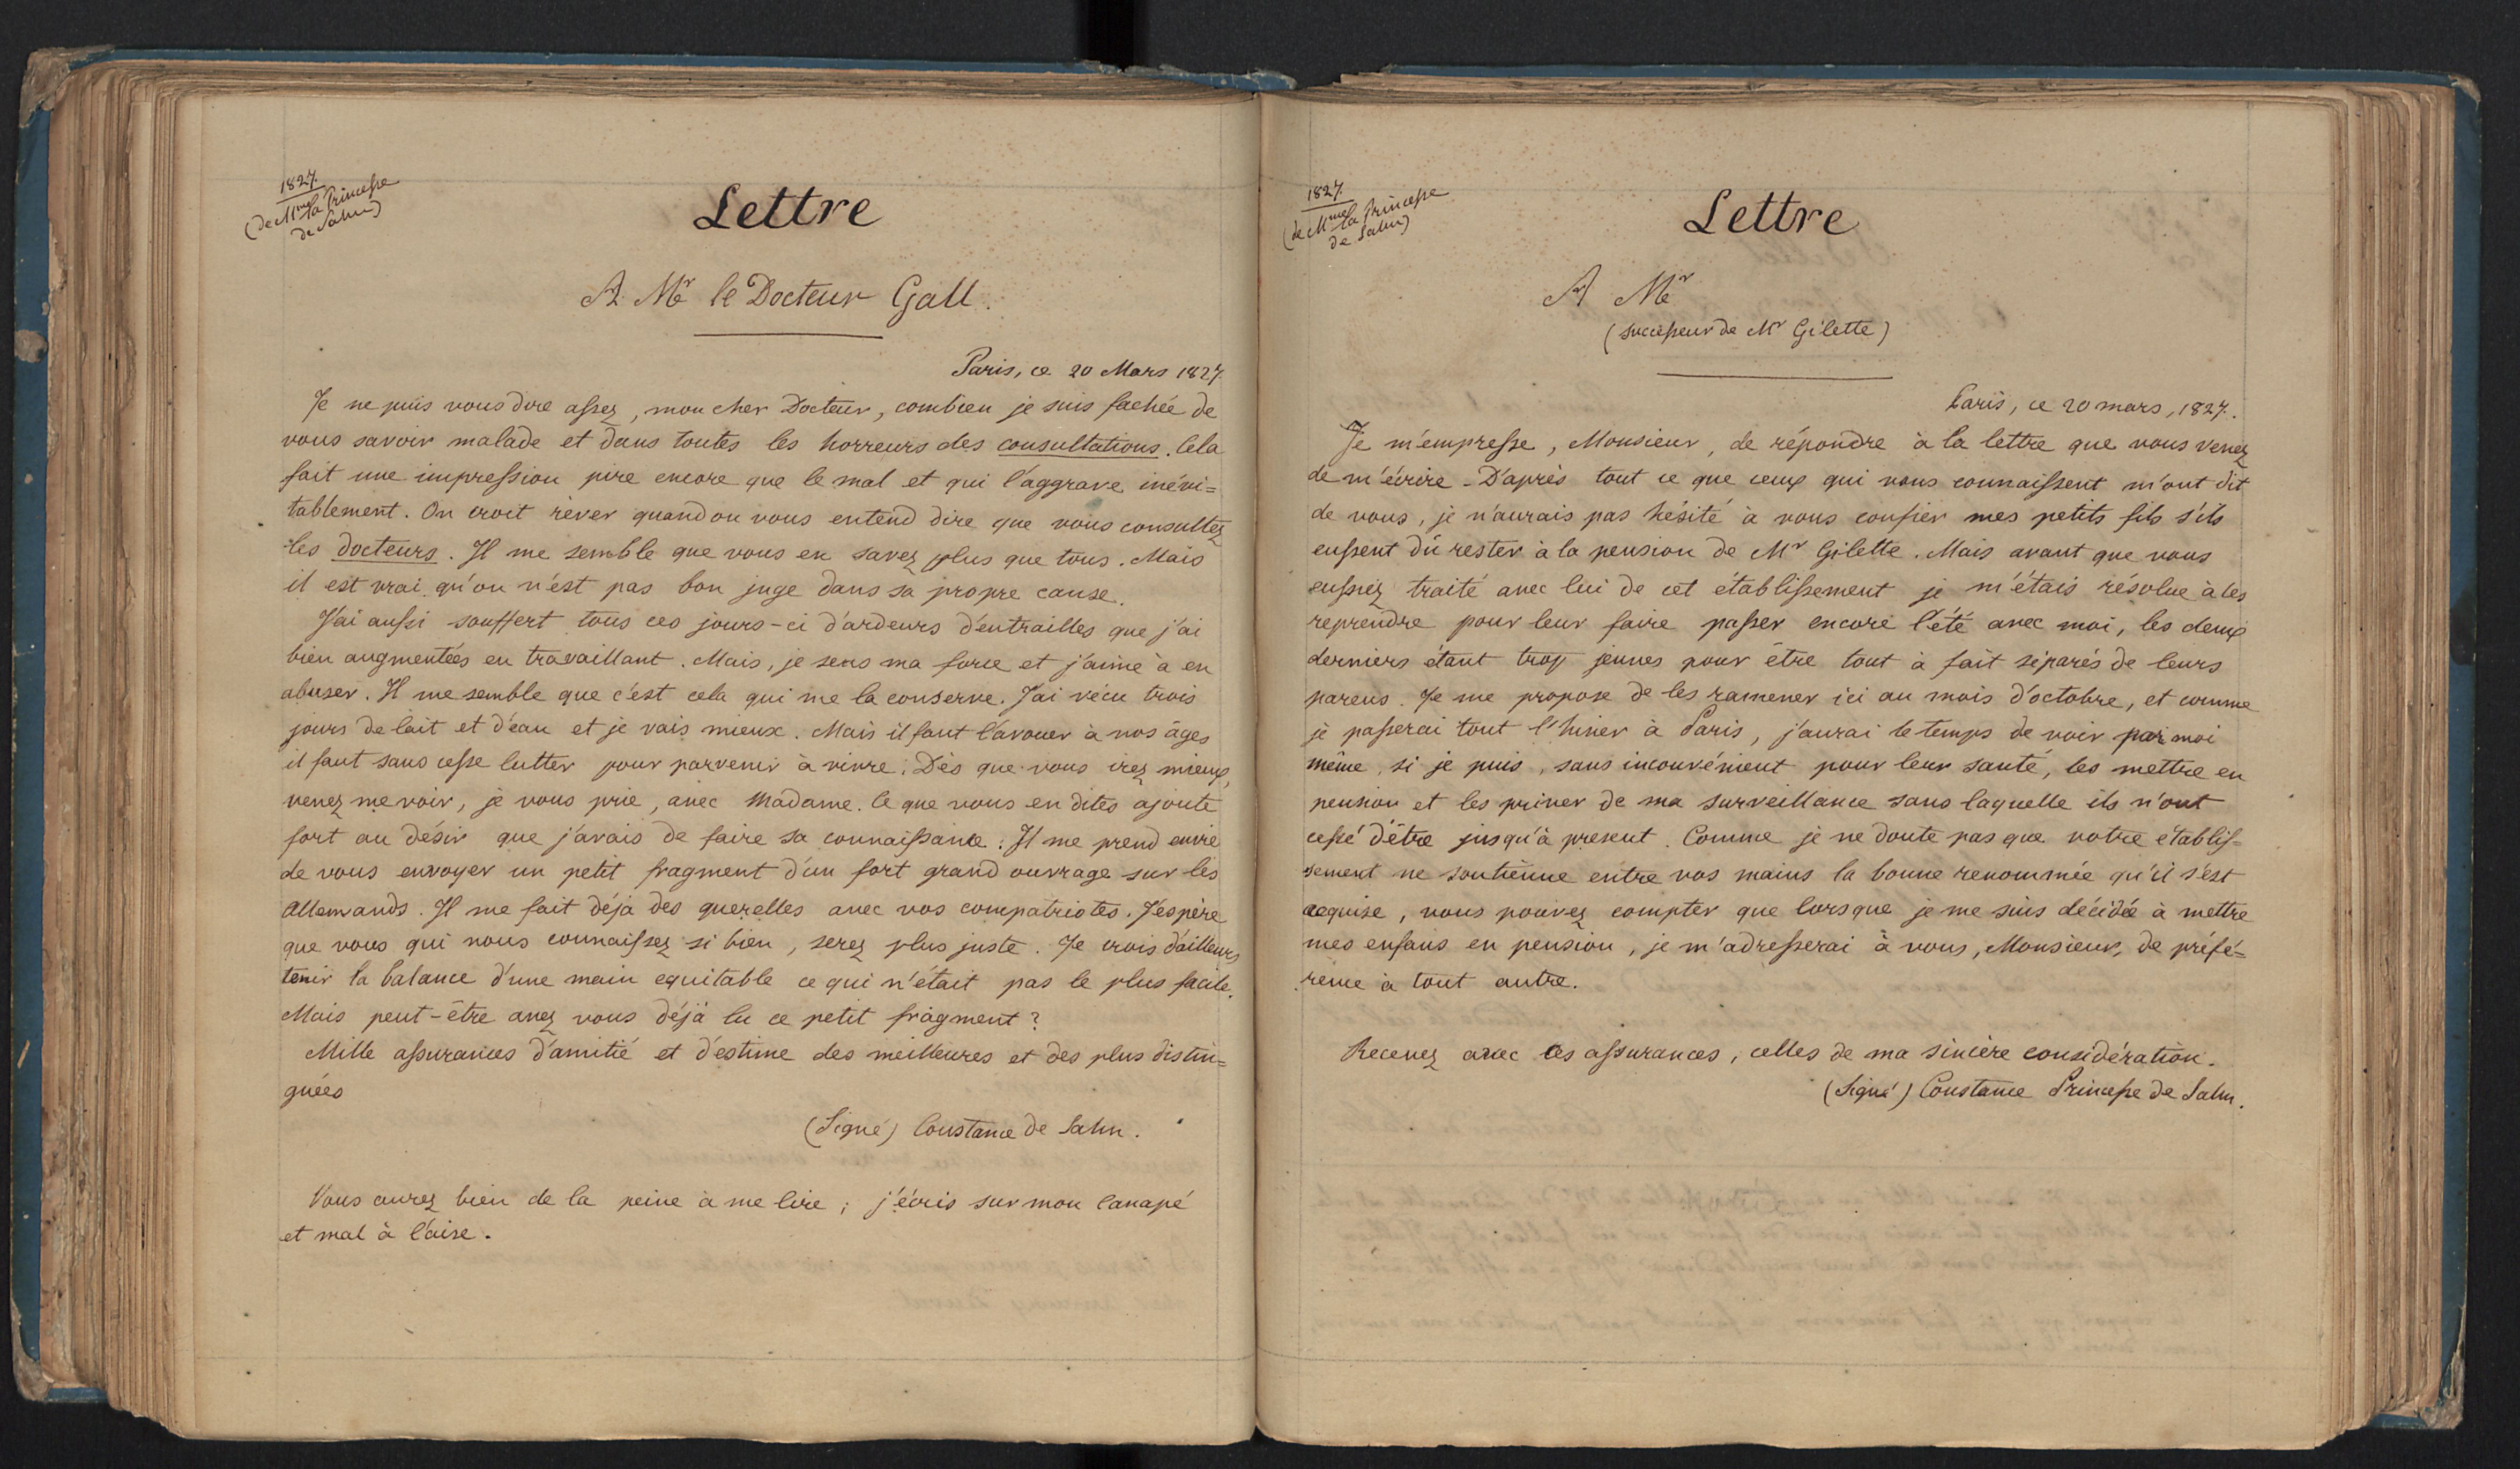 1827.
(de Mme la Princesse
de Salm)
Lettre
A Mr le Docteur Gall.
Paris, ce 20 Mars 1827.
Je ne puis vous dire assez, mon cher Docteur, combien je suis fachée de
vous savoir malade et dans toutes les horreurs des consultations. Cela
fait une impression pire encore que le mal et qui l'aggrave inévi=
tablement. On croit rêver quand on vous entend dire que vous consultez
les docteurs. Il me semble que vous en savez plus que tous. Mais
il est vrai qu'on n'est pas bon juge dans sa propre cause.
J'ai aussi souffert tous ces jours-ci d'ardeurs d'entrailles que j'ai
bien augmentées en travaillant. Mais, je sens ma force et j'aime à en
abuser. Il me semble que c'est cela qui me la conserve. J'ai vécu trois
jours de lait et d'eau et je vais mieux. Mais il faut l'avouer à nos âges
il faut sans cesse lutter pour parvenir à vivre. Dès que vous irez mieux,
venez me voir, je vous prie, avec Madame. Ce que vous en dites ajoute
fort au désir que j'avais de faire sa connaissance. Il me prend envie
de vous envoyer un petit fragment d'un fort grand ouvrage sur les
Allemands. Il me fait déjà des querelles avec vos compatriotes. J'espère
que vous qui nous connaissez si bien, serez plus juste. Je crois d'ailleurs
tenir la balance d'une main equitable ce qui n'était pas le plus facile.
Mais peut-être avez vous déjà lu ce petit fragment?
Mille assurances d'amitié et d'estime des meilleures et des plus distin=
guées
(Signé) Constance de Salm.
Vous aurez bien de la peine à me lire; j'écris sur mon canapé
et mal à l'aise.
1827.
(de Mme la Princesse
de Salm)
Lettre
A Mr
(successeur de Mr Gilette)
Paris, ce 20 mars, 1827.
Je m'empresse, Monsieur, de répondre à la lettre que vous venez
de m'écrire - D'après tout ce que ceux qui vous connaissent m'ont dit
de vous, je n'aurais pas hésité à vous confier mes petits fils s'ils
eussent dû rester à la pension de Mr Gilette. Mais avant que vous
eussiez traité avec lui de cet établissement je m'étais résolue à les
reprendre pour leur faire passer encore l'été avec moi, les deux
derniers étant trop jeunes pour être tout à fait séparés de leurs
parens. Je me propose de les ramener ici au mois d'octobre, et comme
je passerai tout l'hiver à Paris, j'aurai le temps de voir par moi
même, si je puis, sans inconvénient pour leur santé, les mettre en
pension et les priver de ma surveillance sans laquelle ils n'ont
cessé d'être jusqu'à present. Comme je ne doute pas que votre établis-
sement ne soutienne entre vos mains la bonne renommée qu'il s'est
acquise, vous pouvez compter que lorsque je me suis décidée à mettre
mes enfans en pension, je m'adresserai à vous, Monsieur, de préfé=
rence à tout autre.
Recevez avec ces assurances, celles de ma sincère considération.
(Signé) Constance Princesse de Salm.